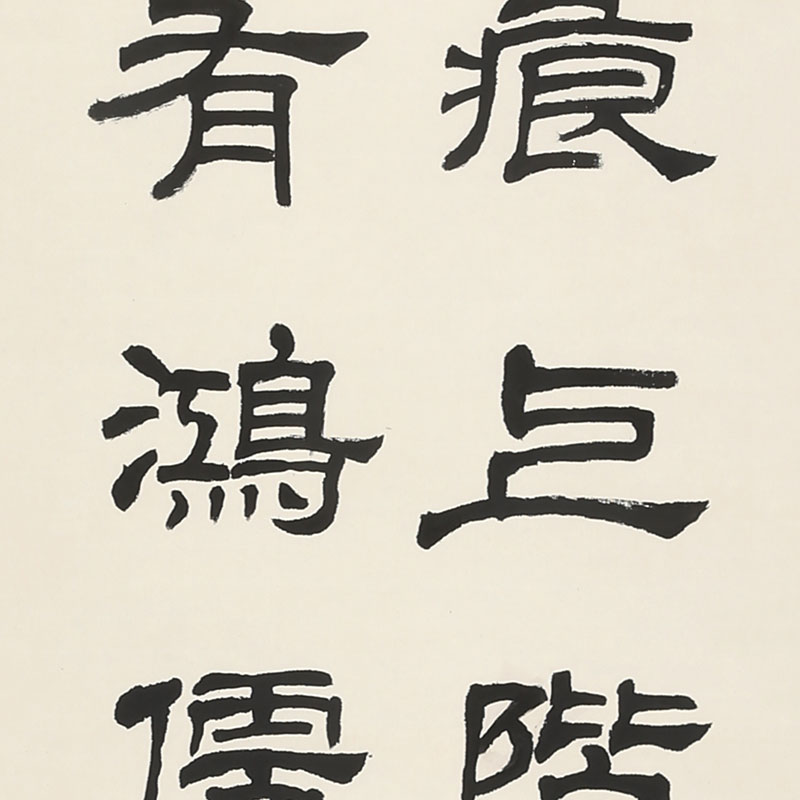 痕上階
有鴻儒